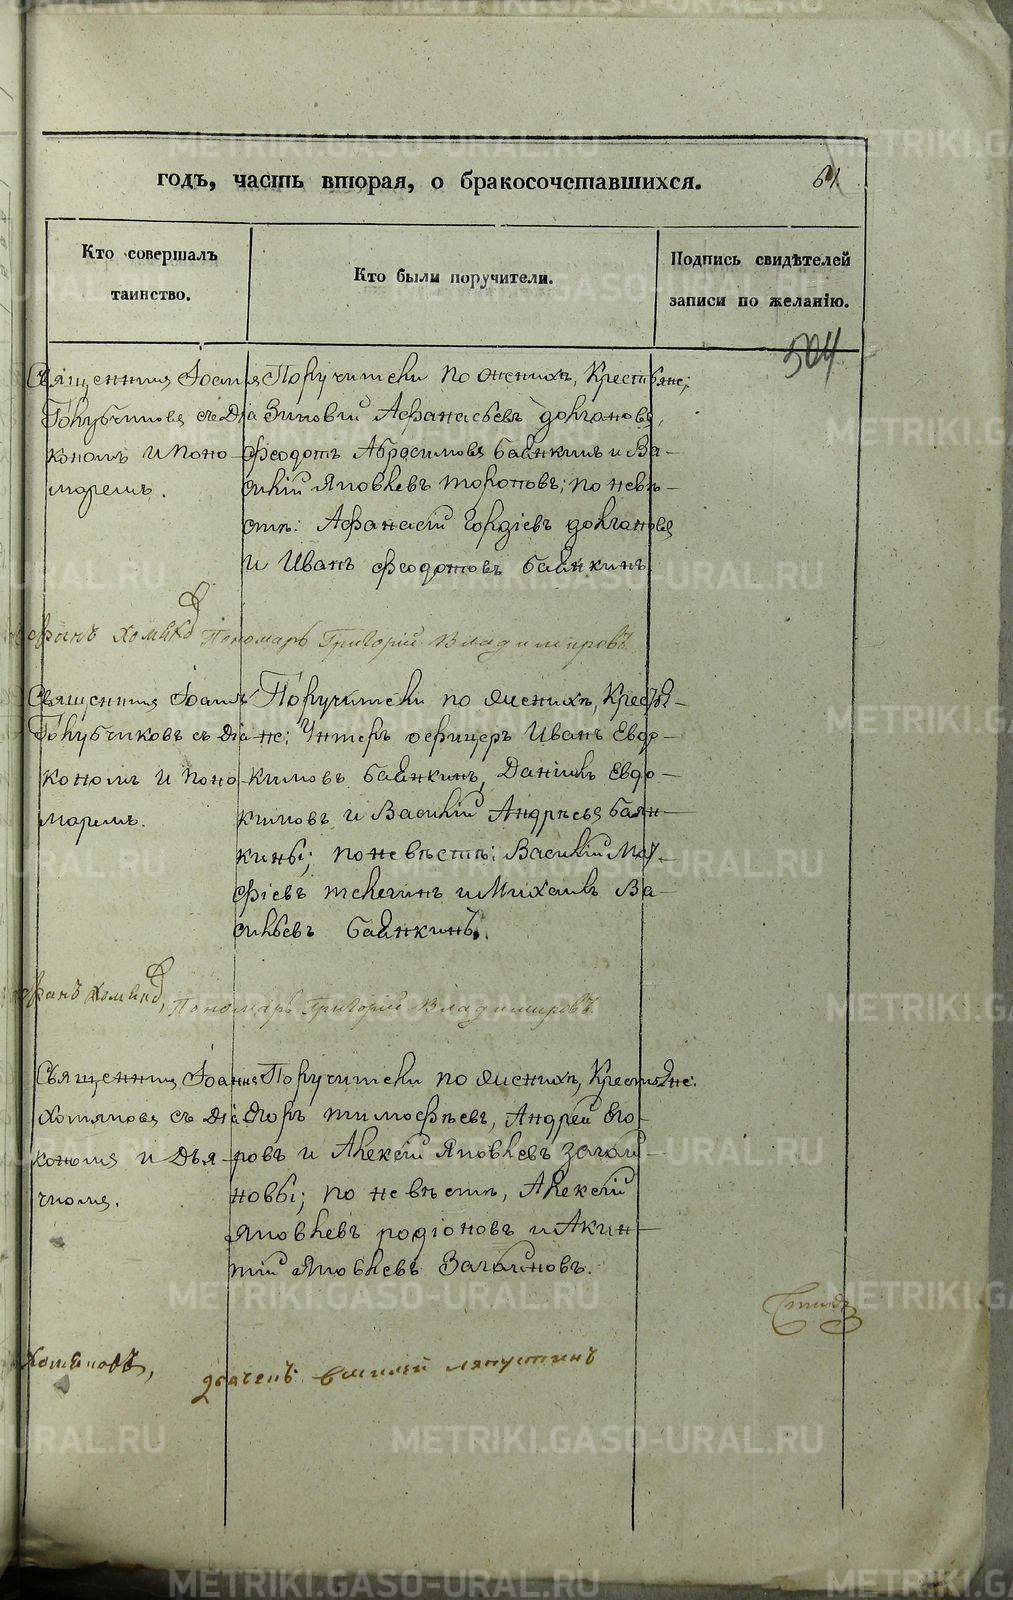 годъ, часть вторая, о бракосочетавшихся.
61
Кто совершалъ таинство.
Кто были поручители.
Подпись свидѣтелей записи по желанію.
504
Священникъ Іоаннъ
Голубчиковъ съ Діа
кономъ и Поно-
маремъ.
Поручители по женихѣ, Крестьяне;
Зиновій Афанасьевъ Долгановъ,
Феодотъ Абросимовъ Баянкинъ и Ва-
силій Яковлевъ Тороповъ; по невѣ-
стѣ: Афанасій Гордіевъ Долгановъ
и Иванъ Феодотовъ Баянкинъ
Пономарь Григорій Владимировъ
Священникъ Іоаннъ
Голубчиковъ съ Діа
кономъ и Поно-
маремъ.
Поручители по женихѣ, Кресть-
яне: Унтеръ офицеръ Иванъ Евдо-
кимовъ Баянкинъ, Даніилъ Евдо-
кимовъ и Василій Андрѣевъ Баян-
кины; по невѣстѣ: Василій
фіевъ и Михаилъ Ва-
сильевъ Баянкинъ.
Пономарь Григорій Владимировъ
Священникъ Іоаннъ
Хотяновъ съ Діа
кономъ и Дья-
чкомъ.
Поручители по женихѣ, Крестьяне:
Егоръ Тимофѣевъ, Андрей Его-
ровъ и Алексій Яковлевъ Загай-
новы; по невѣстѣ, Алексій
Яковлевъ Родіоновъ и Акин-
тій Яковлевъ Загайновъ.
Хотяновъ,
дьячекъ Василей Ляпустинъ
METRIKI.GASO-URAL.RU